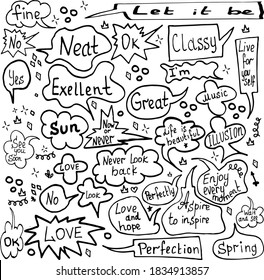 fine
Let it be
No
Neat
OK
Classy
Live
for
you
self
Yes
I'm
Exellent
Great
music
Sun
Now
or
Never
life is
beautiful
ILLUSION
I
See
you
Soon
LOVE
Never Look
back
Enjoy
every
moment
No
Look
Perfectly
Love
and
hope
Aspire
to inspire
Wait
and see
OK
LOVE
Perfection
Spring
shutterstock.com · 1834913857